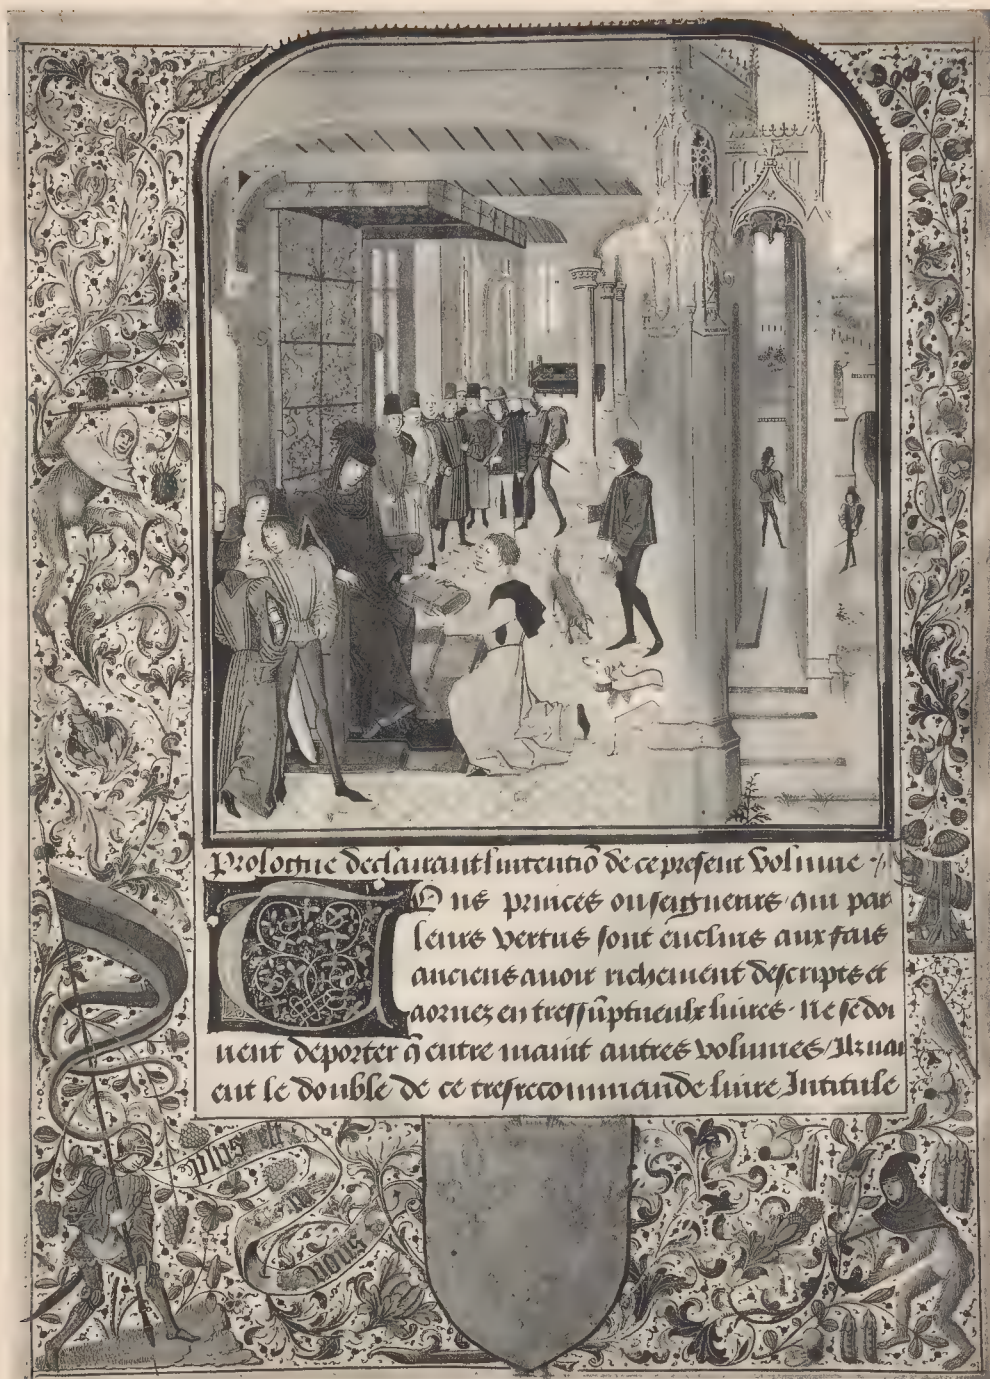 Prologue declairant lintentiõ de ce present volume
Tous princes ou seigneurs qui par
leurs vertus sont enclins aux fais
anciens avoir richement descripts et
aornez en tressũptueulx livres. Ne se doi
vent deporter q̃ entre maint autres volumes / Ilz nai
ent le double de ce tresrecommande livre Intitule
plus est
en
vous